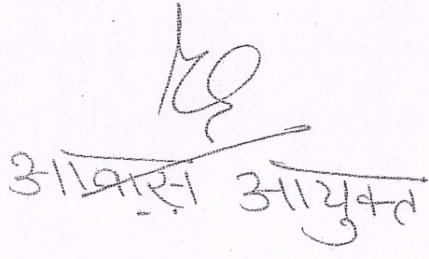 आवास आयुक्त